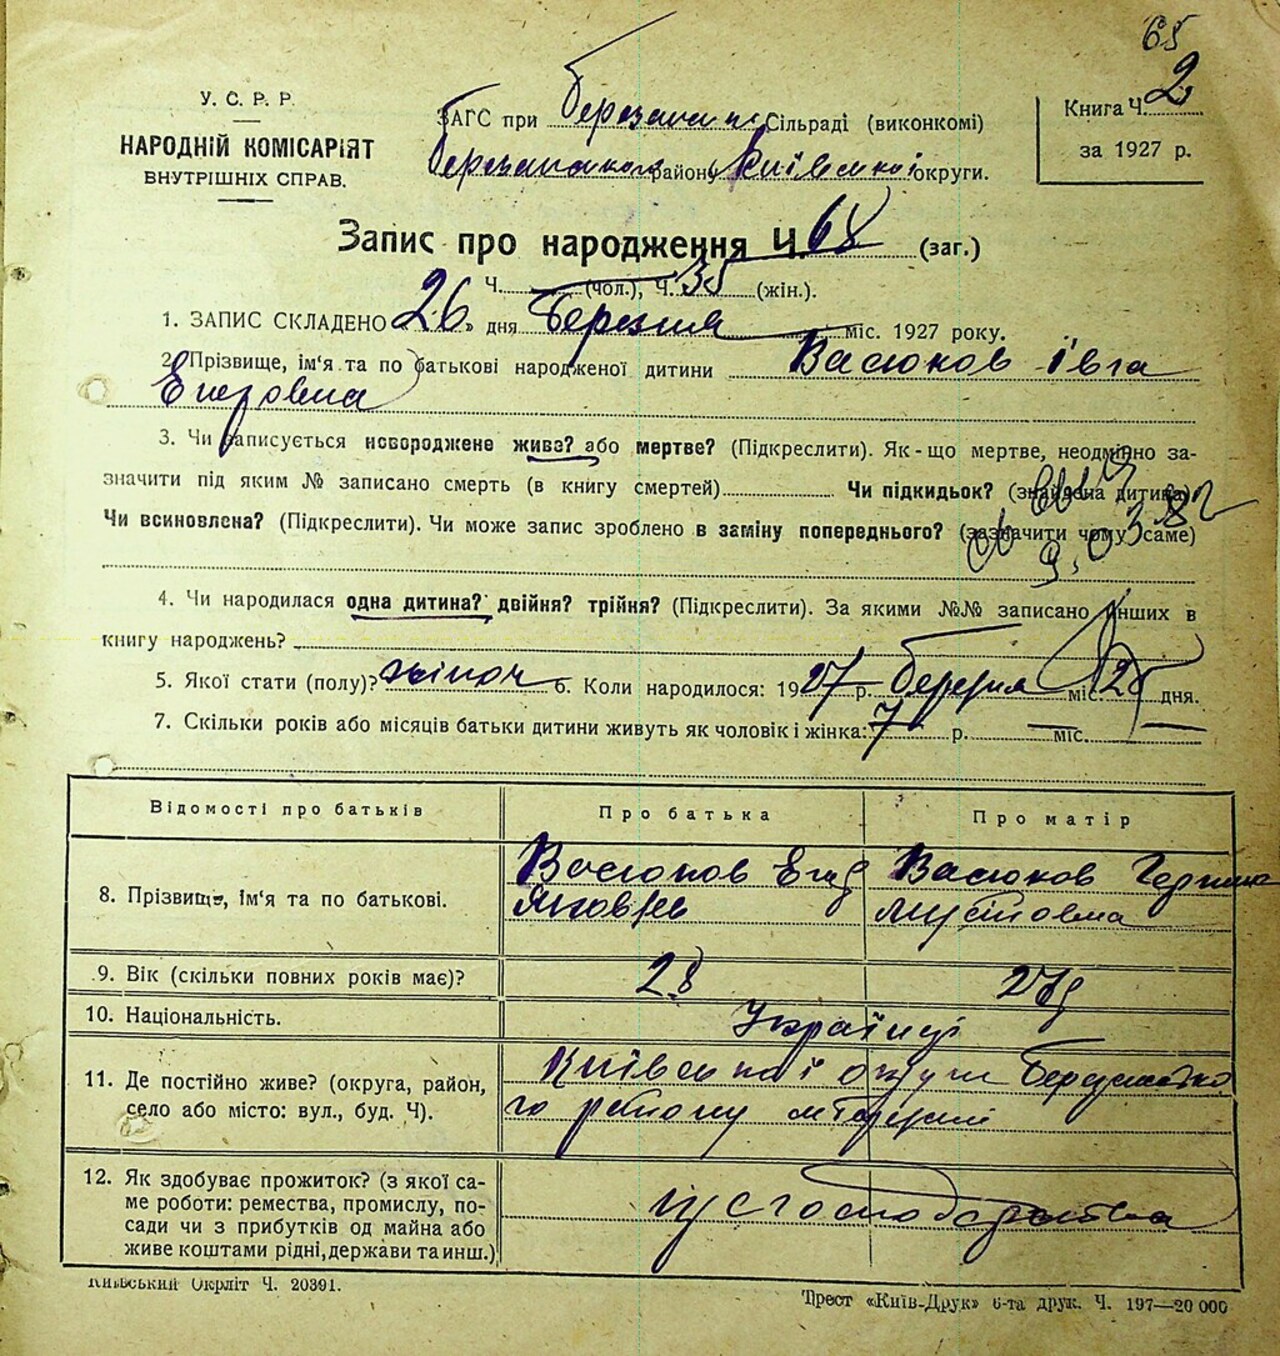 65
У. С. Р. Р.
НАРОДНІЙ КОМІСАРІЯТ
ВНУТРІШНІХ СПРАВ.
ЗАГС при Сільраді (виконкомі)
району Київської округи.
Книга Ч. 2
за 1927 р.
Запис про народження Ч. 68 (заг.)
Ч. (чол.), Ч. 35 (жін.).
1. ЗАПИС СКЛАДЕНО «26» дня Березня міс. 1927 року.
2. Прізвище, ім'я та по батькові народженої дитини Васюков Івга
Егоровна
3. Чи записується новороджене живе? або мертве? (Підкреслити). Як-що мертве, неодмінно за-
значити під яким № записано смерть (в книгу смертей) Чи підкидьок? (знайдена дитина)
Чи всиновлена? (Підкреслити). Чи може запис зроблено в заміну попереднього? (зазначити чому саме)
4. Чи народилася одна дитина? двійня? трійня? (Підкреслити). За якими №№ записано інших в
книгу народжень?
5. Якої стати (полу)? жіноч 6. Коли народилося: 1927 р. березня міс. 25 дня.
7. Скільки років або місяців батьки дитини живуть як чоловік і жінка: 7 р. — міс.
Відомості про батьків Про батька Про матір
8. Прізвище, ім'я та по батькові. Васюков Егор Яковлев Васюков
9. Вік (скільки повних років має)? 28 27
10. Національність. Українці
11. Де постійно живе? (округа, район, Київської округи
село або місто: вул., буд. Ч). го району
12. Як здобуває прожиток? (з якої са-
ме роботи: ремества, промислу, по- господарства
сади чи з прибутків од майна або
живе коштами рідні, держави та инш.)
Київський Окрліт Ч. 20391.
Трест «Київ-Друк» 6-та друк. Ч. 197—20 000